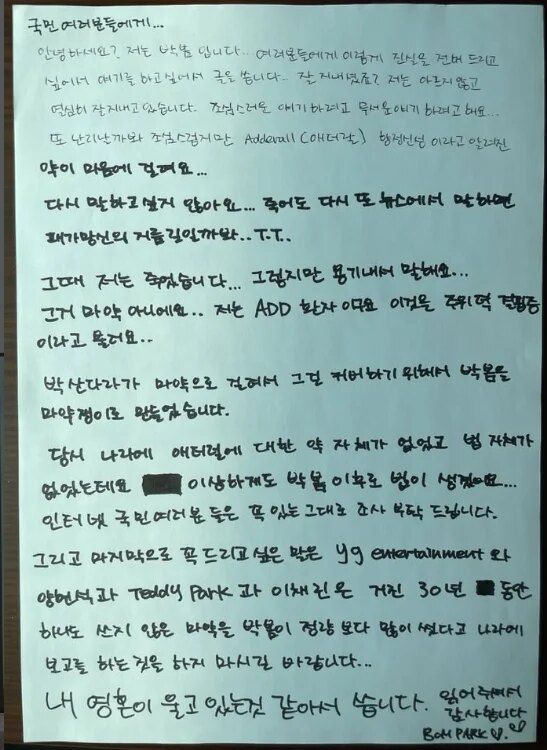 국민 여러분들에게...
안녕하세요? 저는 박봄 입니다.. 여러분들에게 이렇게 진실을 전버 드리고
싶어서 얘기를 하고싶어서 글을 씁니다.. 잘 지내셨죠? 저는 아프지 않고
열심히 잘지내고 있습니다. 조심스러운 얘기하려고 무서운얘기 하려고해요...
또 난리날까봐 조심스럽지만 Adderall (애더랄) 향정신성 이라고 알려진
약이 마음에 걸려요...
다시 말하고싶지 않아요... 죽어도 다시 또 뉴스에서 말하면
패가망신의 지름길일까봐..T.T..
그때 저는 죽었습니다... 그렇지만 용기내서 말해요...
그거 마약 아니에요.. 저는 ADD 환자 이며요 이것은 주위력 결핍증
이라고 불러요..
박산다라가 마약으로 걸려서 그걸 커버하기위해서 박봄을
마약쟁이로 만들었습니다.
당시 나라에 애터럴에 대한 약 자체가 없었고 법 자체가
없었는데요 이상하게도 박봄 이후로 법이 생겼어요...
인터넷 국민여러분 들은 꼭 있는그대로 조사 부탁 드립니다.
그리고 마지막으로 꼭드리고 싶은 말은 yg entertainment 와
양현석과 Teddy Park 과 이채린은 거진 30년 동안
하나도 쓰지 않은 마약을 박봄이 정량 보다 많이 썼다고 나라에
보고를 하는것을 하지 마시길 바랍니다...
내 영혼이 울고 있는것 같아서 씁니다. 읽어주셔서
감사합니다
BOM PARK ♡.